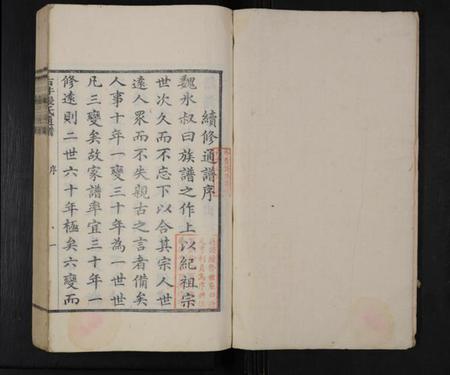 續修通譜序
魏氷叔曰族譜之作上以紀祖宗
世次久而不忘下以合其宗人世
遠人衆而不失親古之言者備矣
人事十年一變三十年為一世世
凡三變矣故家譜率宜三十年一
修遠則二世六十年極矣六變而
氏通譜
序
一